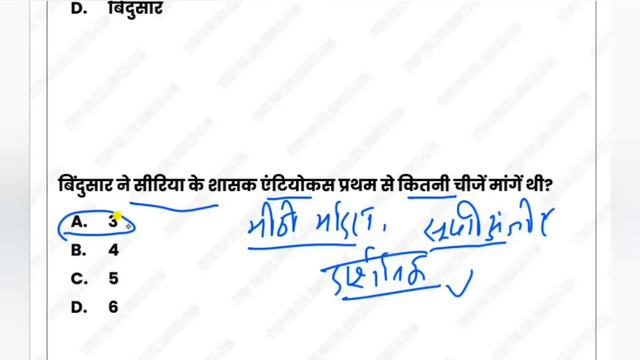 D. बिंदुसार
बिंदुसार ने सीरिया के शासक एंटियोकस प्रथम से कितनी चीजें मांगें थी?
A. 3
B. 4
C. 5
D. 6
मीठी मदिरा,
सूखी अंजीर
दार्शनिक